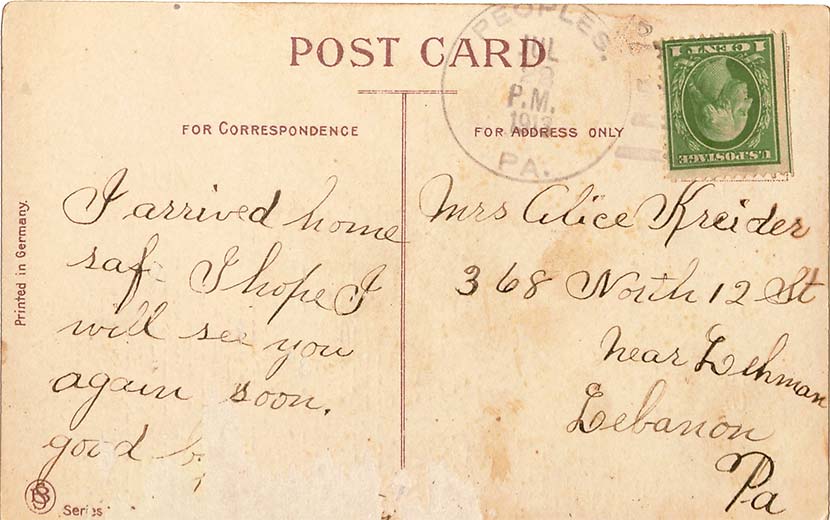 POST CARD
FOR CORRESPONDENCE
FOR ADDRESS ONLY
PEOPLES.
JUL
P.M.
1913
PA.
1 CENT 1
U.S. POSTAGE
Printed in Germany.
I arrived home
saf I hope I
will see you
again soon.
good b
Series
Mrs Alice Kreider
368 North 12 St
near Lehman
Lebanon
Pa